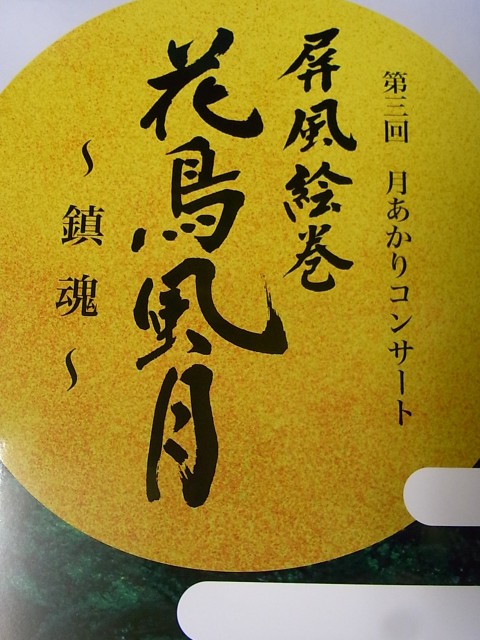 第三回 月あかりコンサート
屏風絵巻
花鳥風月
～鎮魂～